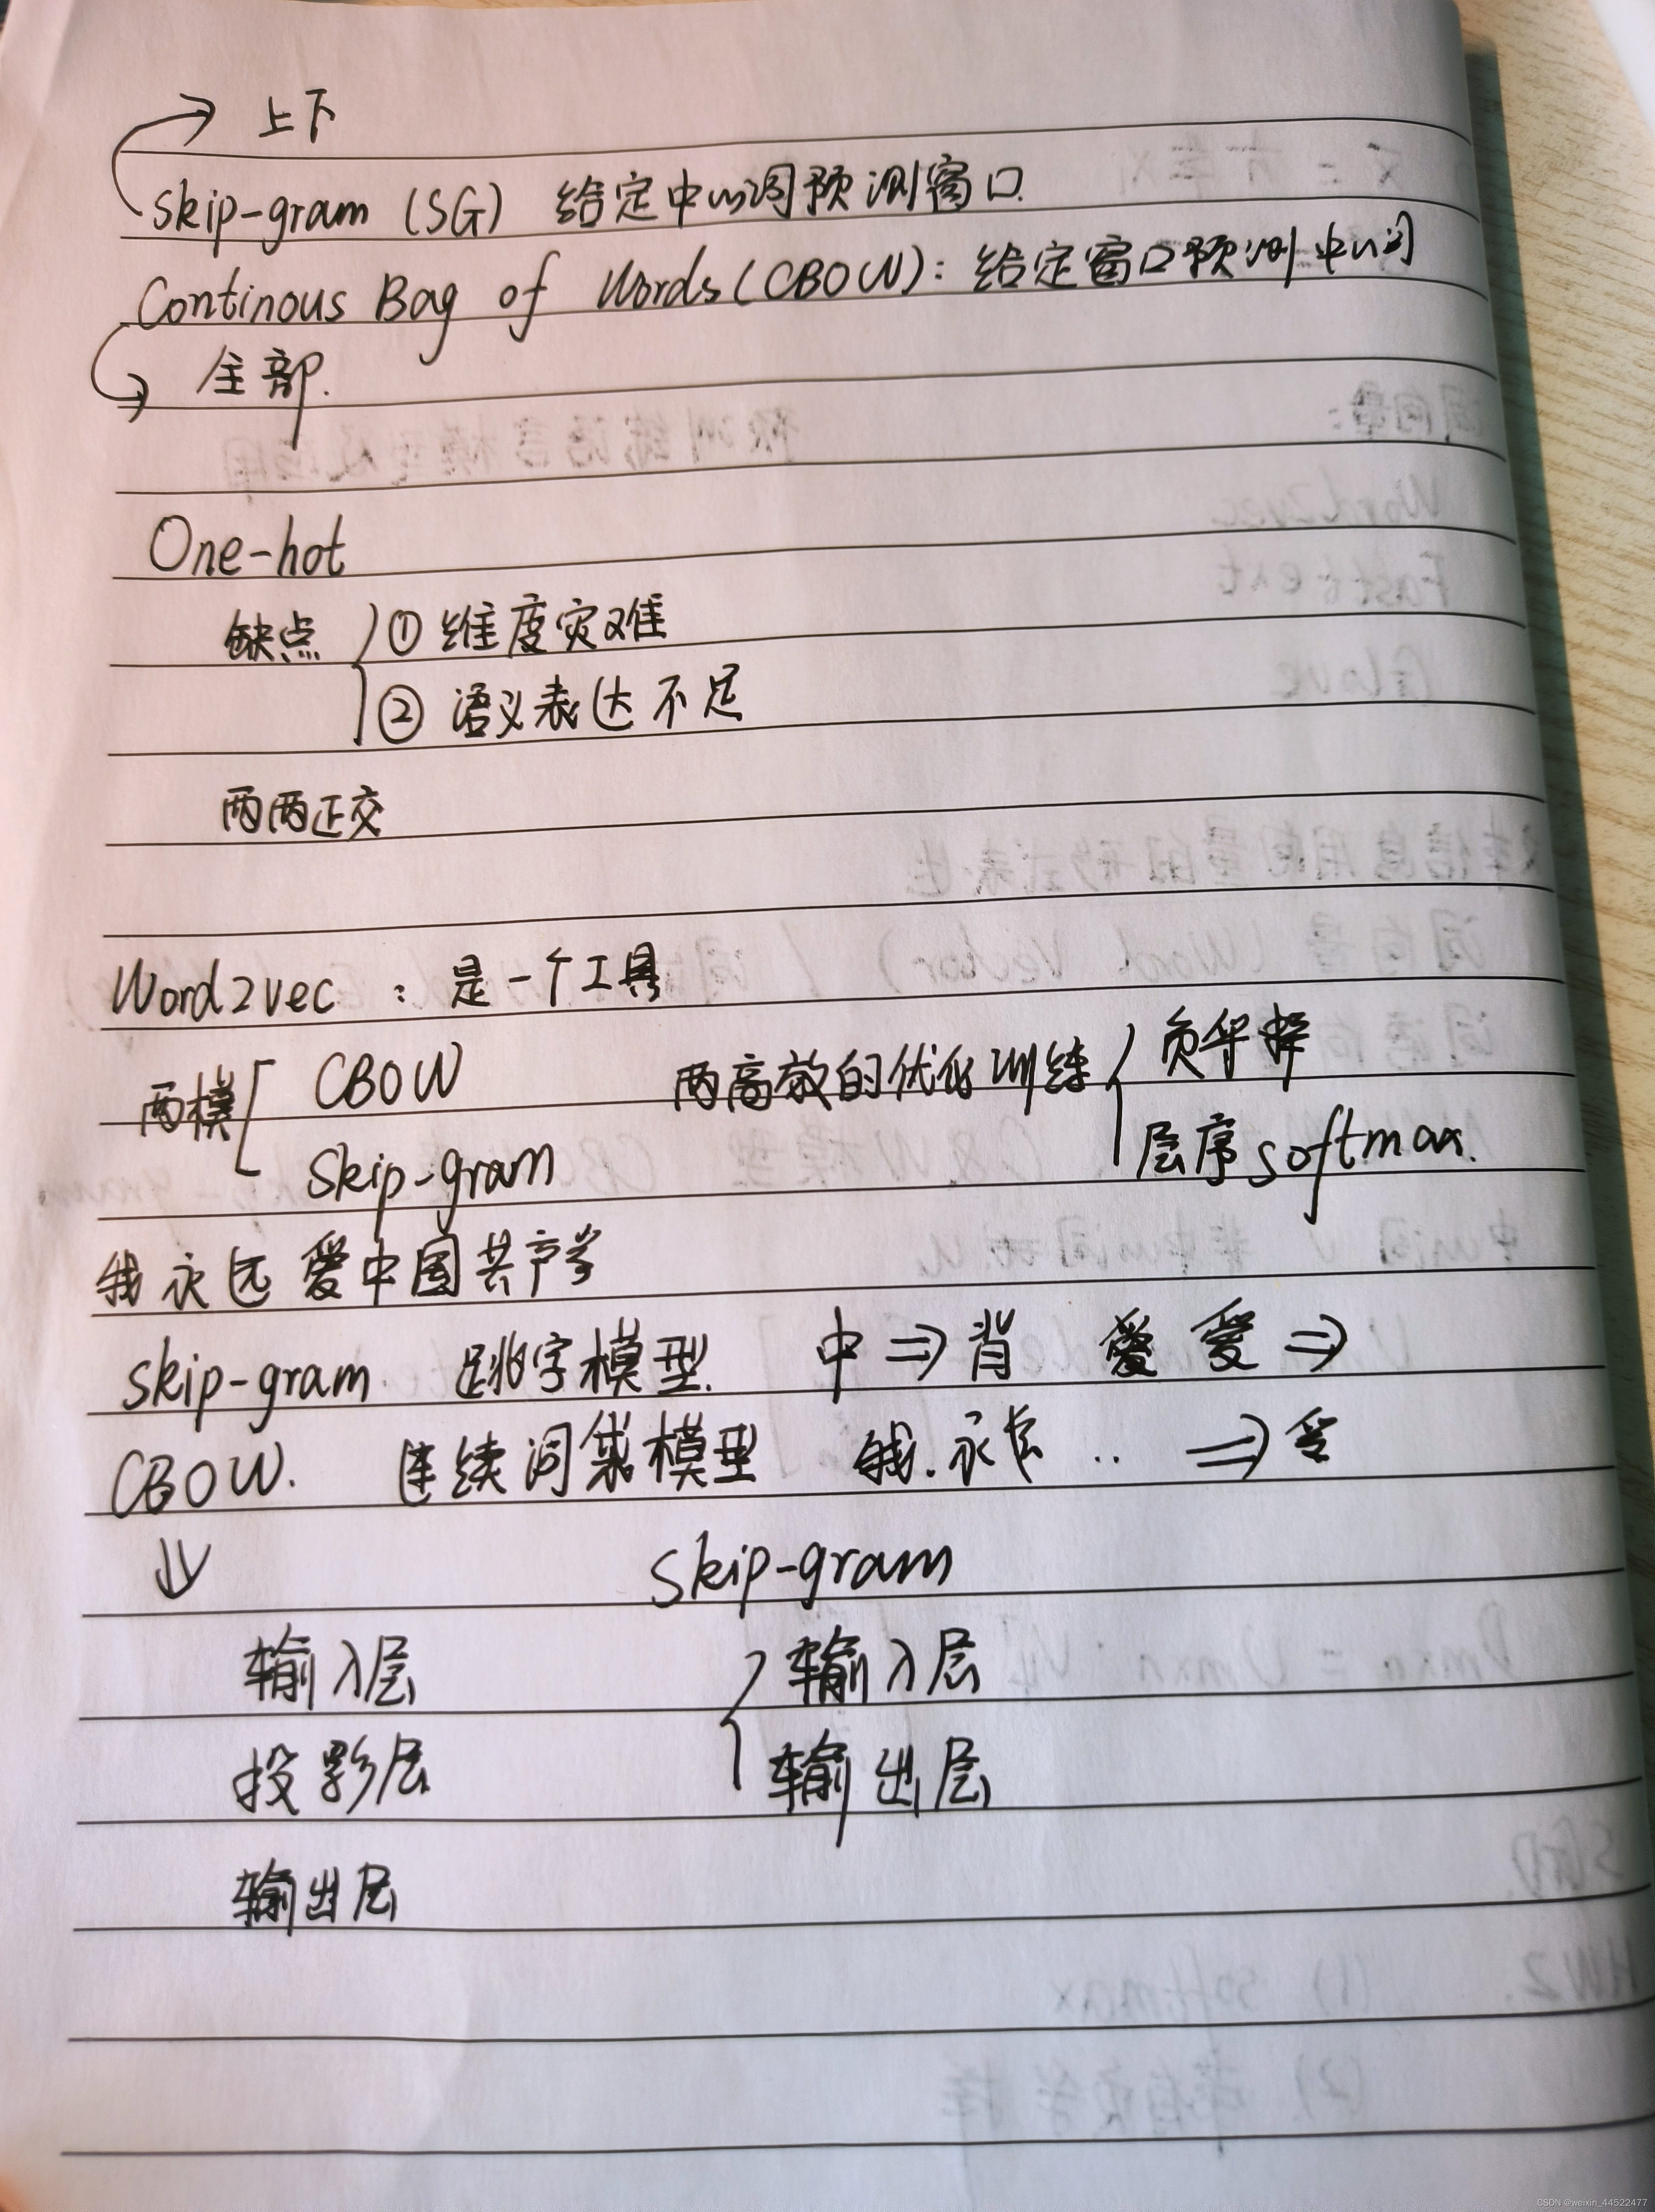 上下
skip-gram (SG) 给定中心词预测窗口
Continous Bag of Words (CBOW): 给定窗口预测中心词
全部.
One-hot
缺点 ① 维度灾难
② 语义表达不足
两两正交
Word2vec : 是一个工具
两模 CBOW 两高效的优化训练 负采样
Skip-gram 层序softmax.
我永远爱中国共产党
skip-gram 跳字模型. 中 ⇒ 爱 ⇒
CBOW. 连续词袋模型 我. 永 .. ⇒
⇓ skip-gram
输入层 输入层
投影层 输出层
输出层
CSDN @weixin_44522477